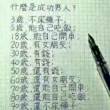 什麼是成功男人?
3歲,不尿褲子。
5歲,能自己吃飯。
18歲,能自己開車。
20歲,有女朋友。
30歲,有錢。
40歲,有錢。
50歲,還有錢。
60歲,還有女朋友。
70歲,還能自己開車。
80歲,還能自己吃飯。
90歲,還不尿褲子。